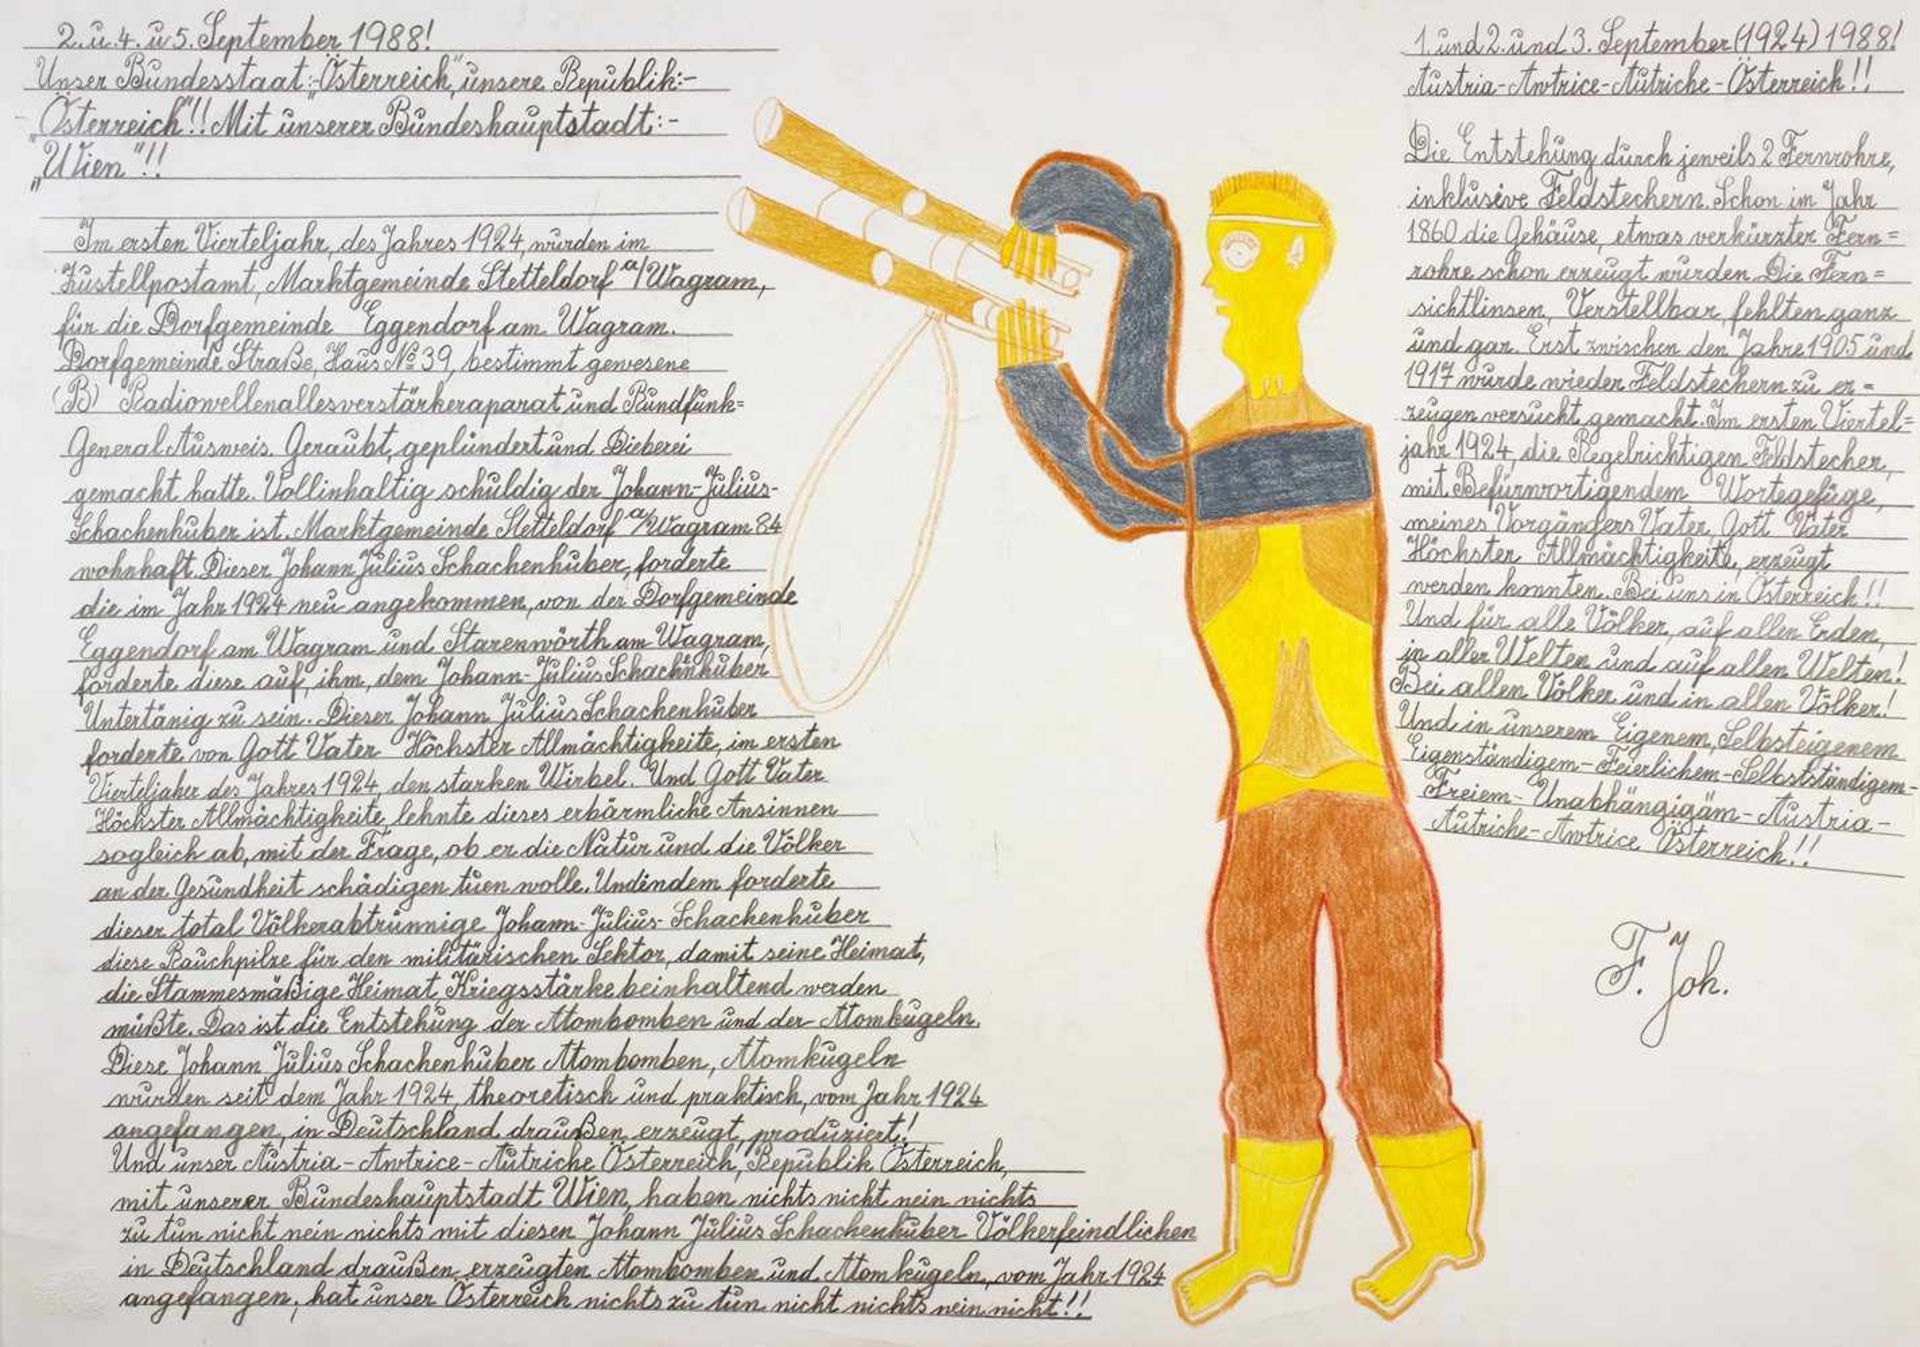 2. u. 4. u 5. September 1988!
Unser Bundesstaat:-„Österreich", unsere Republik:-
„Österreich"!! Mit unserer Bundeshauptstadt:-
„Wien"!!
Im ersten Vierteljahr, des Jahres 1924, wurden im
Zustellpostamt, Marktgemeinde Stetteldorf a/Wagram,
für die Dorfgemeinde Eggendorf am Wagram.
Dorfgemeinde Straße, Haus No 39, bestimmt gewesene
(B) Radiowellenallesverstärkeraparat und Rundfunk=
General Ausweis. Geraubt, geplündert und Dieberei
gemacht hatte. Vollinhaltig schuldig der Johann-Julius-
Schachenhuber ist. Marktgemeinde Stetteldorf a/Wagram 84
wohnhaft. Dieser Johann Julius Schachenhuber, forderte
die im Jahr 1924 neu angekommen, von der Dorfgemeinde
Eggendorf am Wagram und Starenwörth am Wagram,
forderte diese auf, ihm, dem Johann-Julius Schachenhuber
Untertänig zu sein. Dieser Johann Julius Schachenhuber
forderte von Gott Vater Höchster Allmächtigkeite, im ersten
Vierteljaher des Jahres 1924, den starken Wirbel. Und Gott Vater
Höchster Allmächtigkeite, lehnte dieses erbärmliche Ansinnen
sogleich ab, mit der Frage, ob er die Natur und die Völker
an der Gesundheit schädigen tuen wolle. Undindem forderte
dieser total Völkerabtrünnige Johann-Julius-Schachenhuber
diese Rauchpilze für den militärischen Sektor, damit seine Heimat,
die Stammesmäßige Heimat, Kriegsstärke beinhaltend werden
müßte. Das ist die Entstehung der Atombomben und der Atomkugeln.
Diese Johann Julius Schachenhuber Atombomben, Atomkugeln
wurden seit dem Jahr 1924, theoretisch und praktisch, vom Jahr 1924
angefangen, in Deutschland draußen, erzeugt, produziert!
Und unser Austria-Awtrice-Autriche Österreich, Republik Österreich,
mit unserer Bundeshauptstadt Wien, haben nichts nicht nein nichts
zu tun nicht nein nichts mit diesen Johann Julius Schachenhuber Völkerfeindlichen
in Deutschland draußen erzeugten Atombomben und Atomkugeln, vom Jahr 1924
angefangen, hat unser Österreich nichts zu tun nicht nichts nein nicht!!
1. und 2. und 3. September (1924) 1988!
Austria-Awtrice-Autriche-Österreich!!
Die Entstehung durch jeweils 2 Fernrohre,
inklusive Feldstechern. Schon im Jahr
1860 die Gehäuse, etwas verkürzter Fern=
rohre schon erzeugt wurden. Die Fern=
sichtlinsen, Verstellbar, fehlten ganz
und gar. Erst zwischen den Jahre 1905 und
1917 wurde wieder Feldstechern zu er=
zeugen versucht gemacht. Im ersten Viertel=
jahr 1924, die Regelrichtigen Feldstecher,
mit Befürwortigendem Wortegefüge,
meines Vorgängers Vater, Gott Vater
Höchster Allmächtigkeite, erzeugt
werden konnten. Bei uns in Österreich!!
Und für alle Völker, auf allen Erden,
in aller Welten und auf allen Welten!
Bei allen Völker und in allen Völker!
Und in unserem Eigenem, Selbsteigenem
Eigenständigem-Feierlichem-Selbstständigem-
Freiem-Unabhängigäm-Austria-
Autriche-Awtrice Österreich!!
F. Joh.